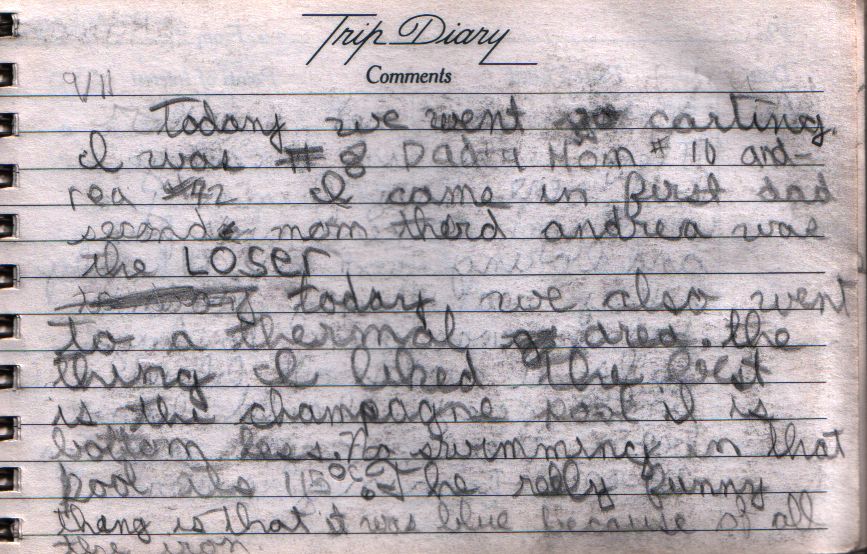 Trip Diary
Comments
9/11
Today we went go carting.
I was # 8 Dad # 9 Mom # 10 and-
rea #72 I came in first dad
second mom therd andrea was
the LOSER
today we also went
to a thermal area. the
thing I liked the best
is the champagne pool it is
bottom less. No swimming in that
pool its 115°C. The relly funny
thang is that it was blue because of all
the iron